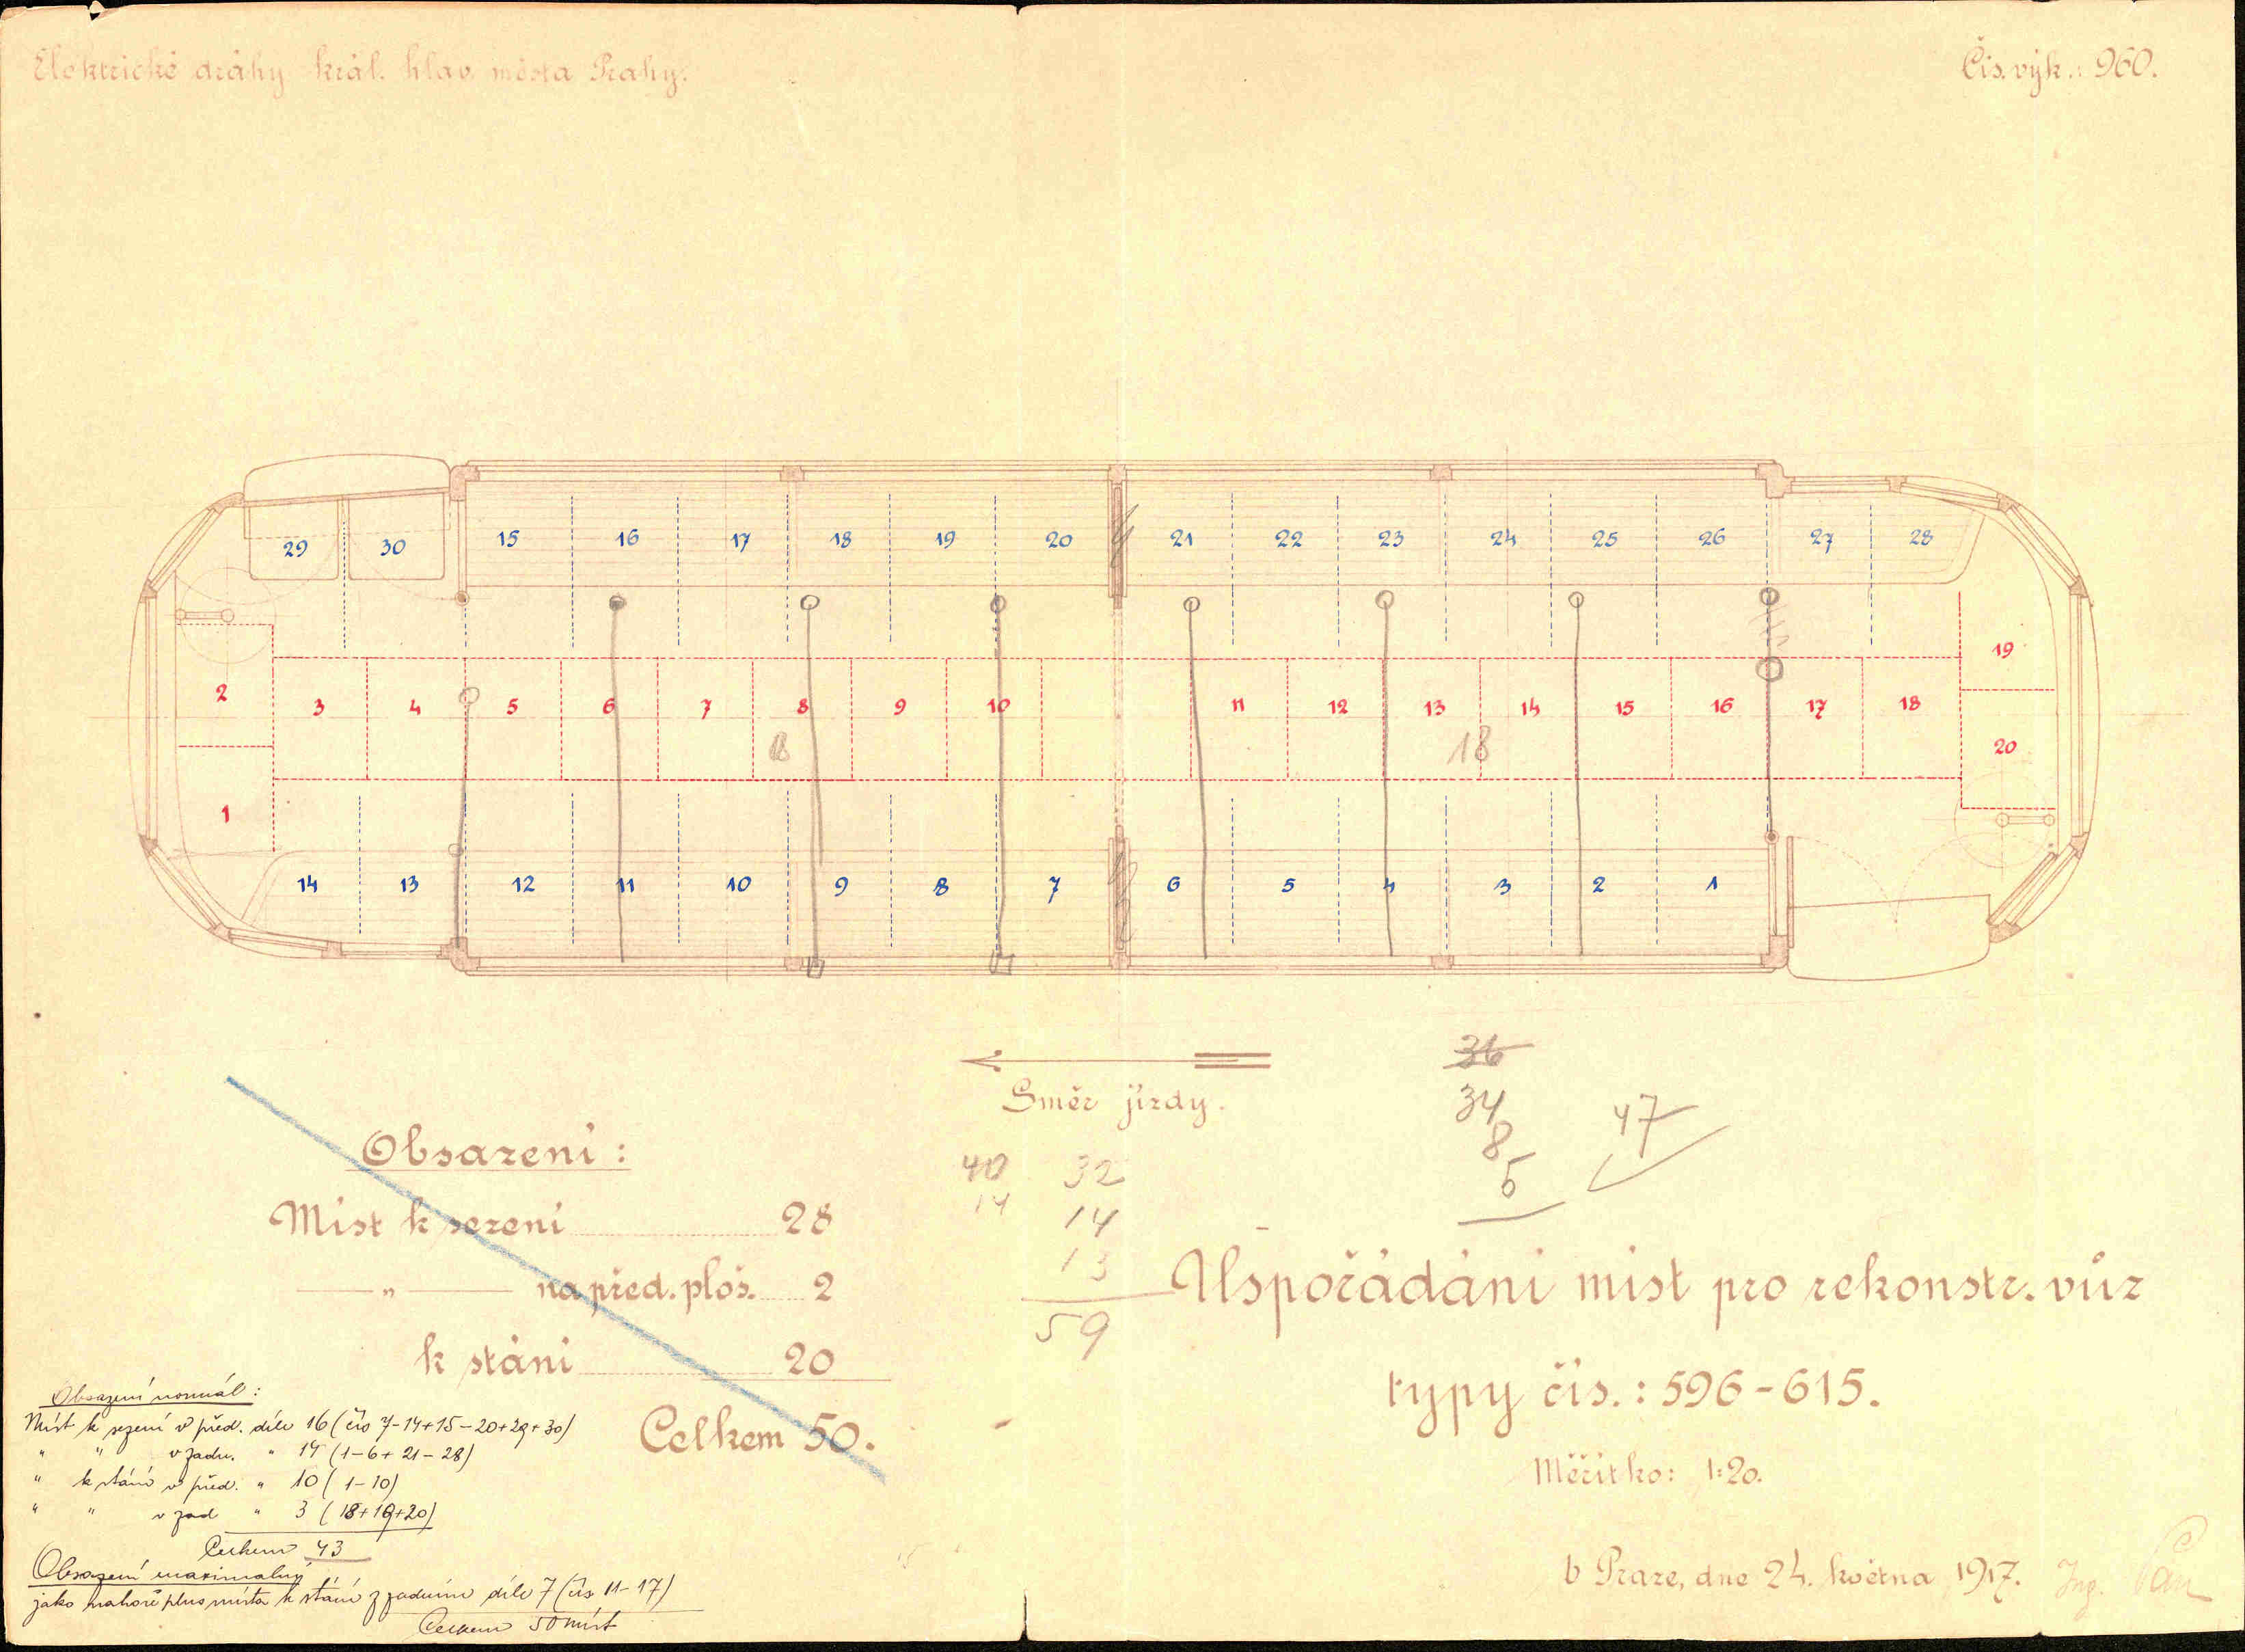 Elektrické dráhy král. hlav. města Prahy.
Čís. výk.: 960.
29 30 15 16 17 18 19 20 21 22 23 24 25 26 27 28
19
2 3 4 5 6 7 8 9 10 11 12 13 14 15 16 17 18
18
20
1
14 13 12 11 10 9 8 7 6 5 4 3 2 1
Směr jízdy.
36
34
8
5
47
40 32
14 14
13
59
Obsazení:
Míst k sezení 28
" na před. ploš. 2
k stání 20
Celkem 50.
Uspořádání míst pro rekonstr. vůz
typy čís.: 596-615.
Měřítko: 1:20.
V Praze, dne 24. května 1917. Ing.
Obsazení normál:
Míst k sezení v před. díle 16 (čís 7-14+15-20+29+30)
" " v zadu. " 14 (1-6+21-28)
" k stání v před. " 10 (1-10)
" " v zad " 3 (18+19+20)
Celkem 43
Obsazení maximalný
jako nahoře plus místa k stání z zadním díle 7 (čís 11-17)
Celkem 50 míst